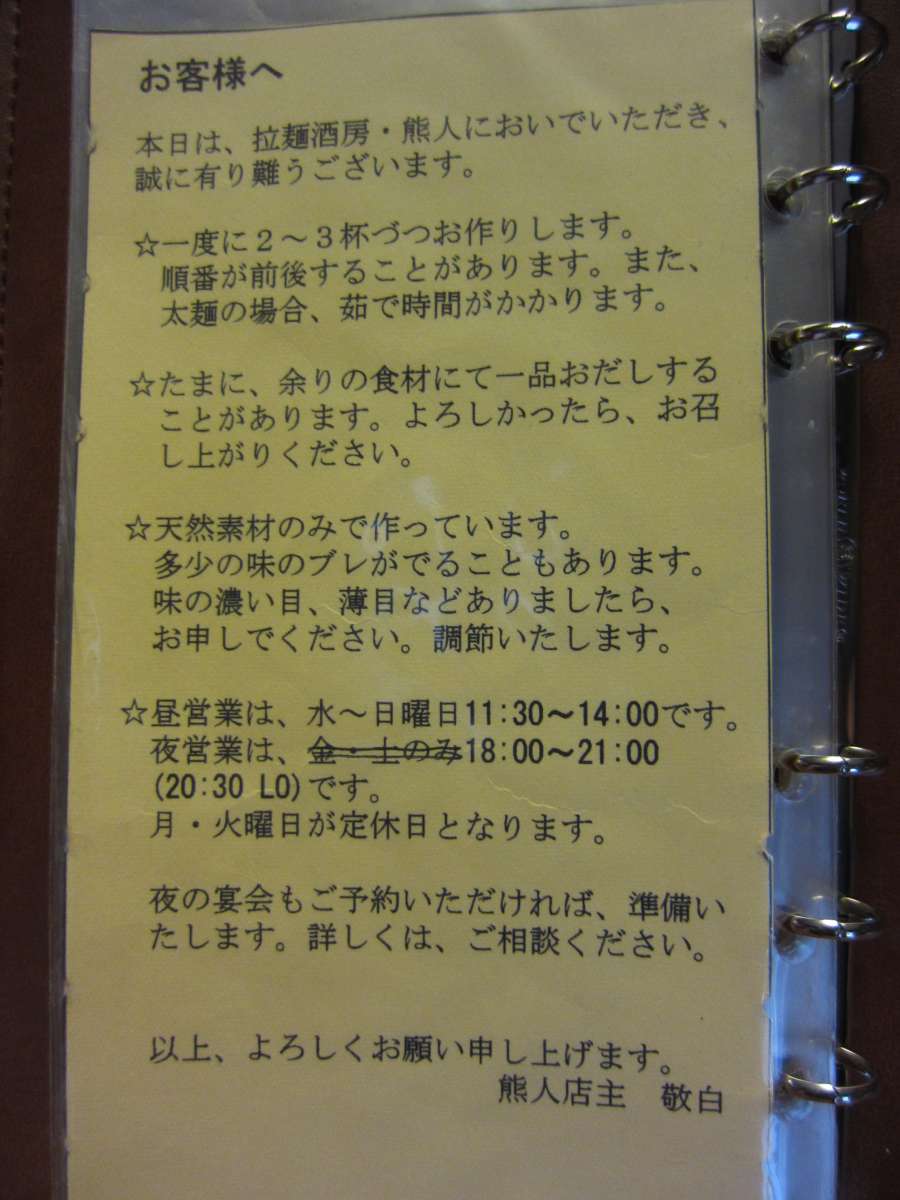 お客様へ
本日は、拉麺酒房・熊人においでいただき、
誠に有り難うございます。
☆一度に２～３杯づつお作りします。
順番が前後することがあります。また、
太麺の場合、茹で時間がかかります。
☆たまに、余りの食材にて一品おだしする
ことがあります。よろしかったら、お召
し上がりください。
☆天然素材のみで作っています。
多少の味のブレがでることもあります。
味の濃い目、薄目などありましたら、
お申しでください。調節いたします。
☆昼営業は、水～日曜日11:30～14:00です。
夜営業は、金・土のみ18:00～21:00
(20:30 LO)です。
月・火曜日が定休日となります。
夜の宴会もご予約いただければ、準備い
たします。詳しくは、ご相談ください。
以上、よろしくお願い申し上げます。
熊人店主　敬白